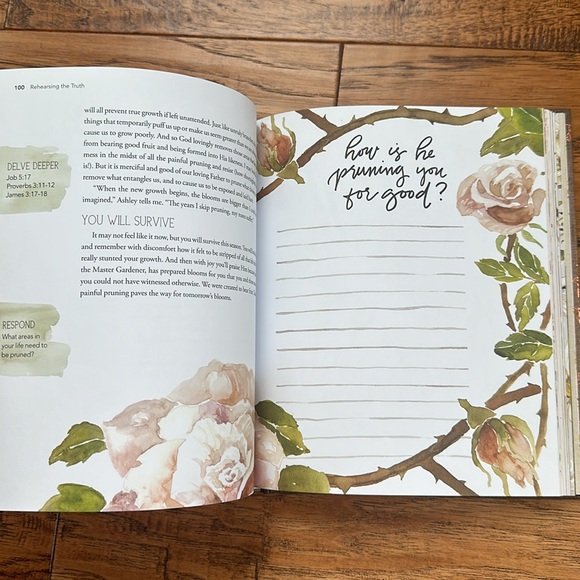 100 Rehearsing the Truth
will all prevent true growth if left unattended. Just like
things that temporarily puff us up or make us seem greater than
cause us to grow poorly. And so God lovingly removes
from bearing good fruit and being formed into His
mess in the midst of all the painful pruning and
it). But it is merciful and good of our loving Father to prune
remove what entangles us, and to cause us to be exposed and
"When the new growth begins, the blooms are bigger than
imagined," Ashley tells me. "The years I skip pruning,
YOU WILL SURVIVE
It may not feel like it now, but you will survive this season.
and remember with discomfort how it felt to be stripped of all that
really stunted your growth. And then with joy you'll praise Him
the Master Gardener, has prepared blooms for you that you and
you could not have witnessed otherwise. We were created to
painful pruning paves the way for tomorrow's blooms.
DELVE DEEPER
Job 5:17
Proverbs 3:11-12
James 3:17-18
RESPOND
What areas in
your life need to
be pruned?
how is he
pruning you
for good?